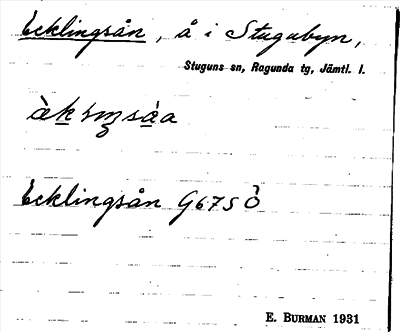 Ecklingsån, å i Stugubyn,
Stuguns sn, Ragunda tg, Jämtl. l.
Ecklingsån G675 Ö
E. BURMAN 1931